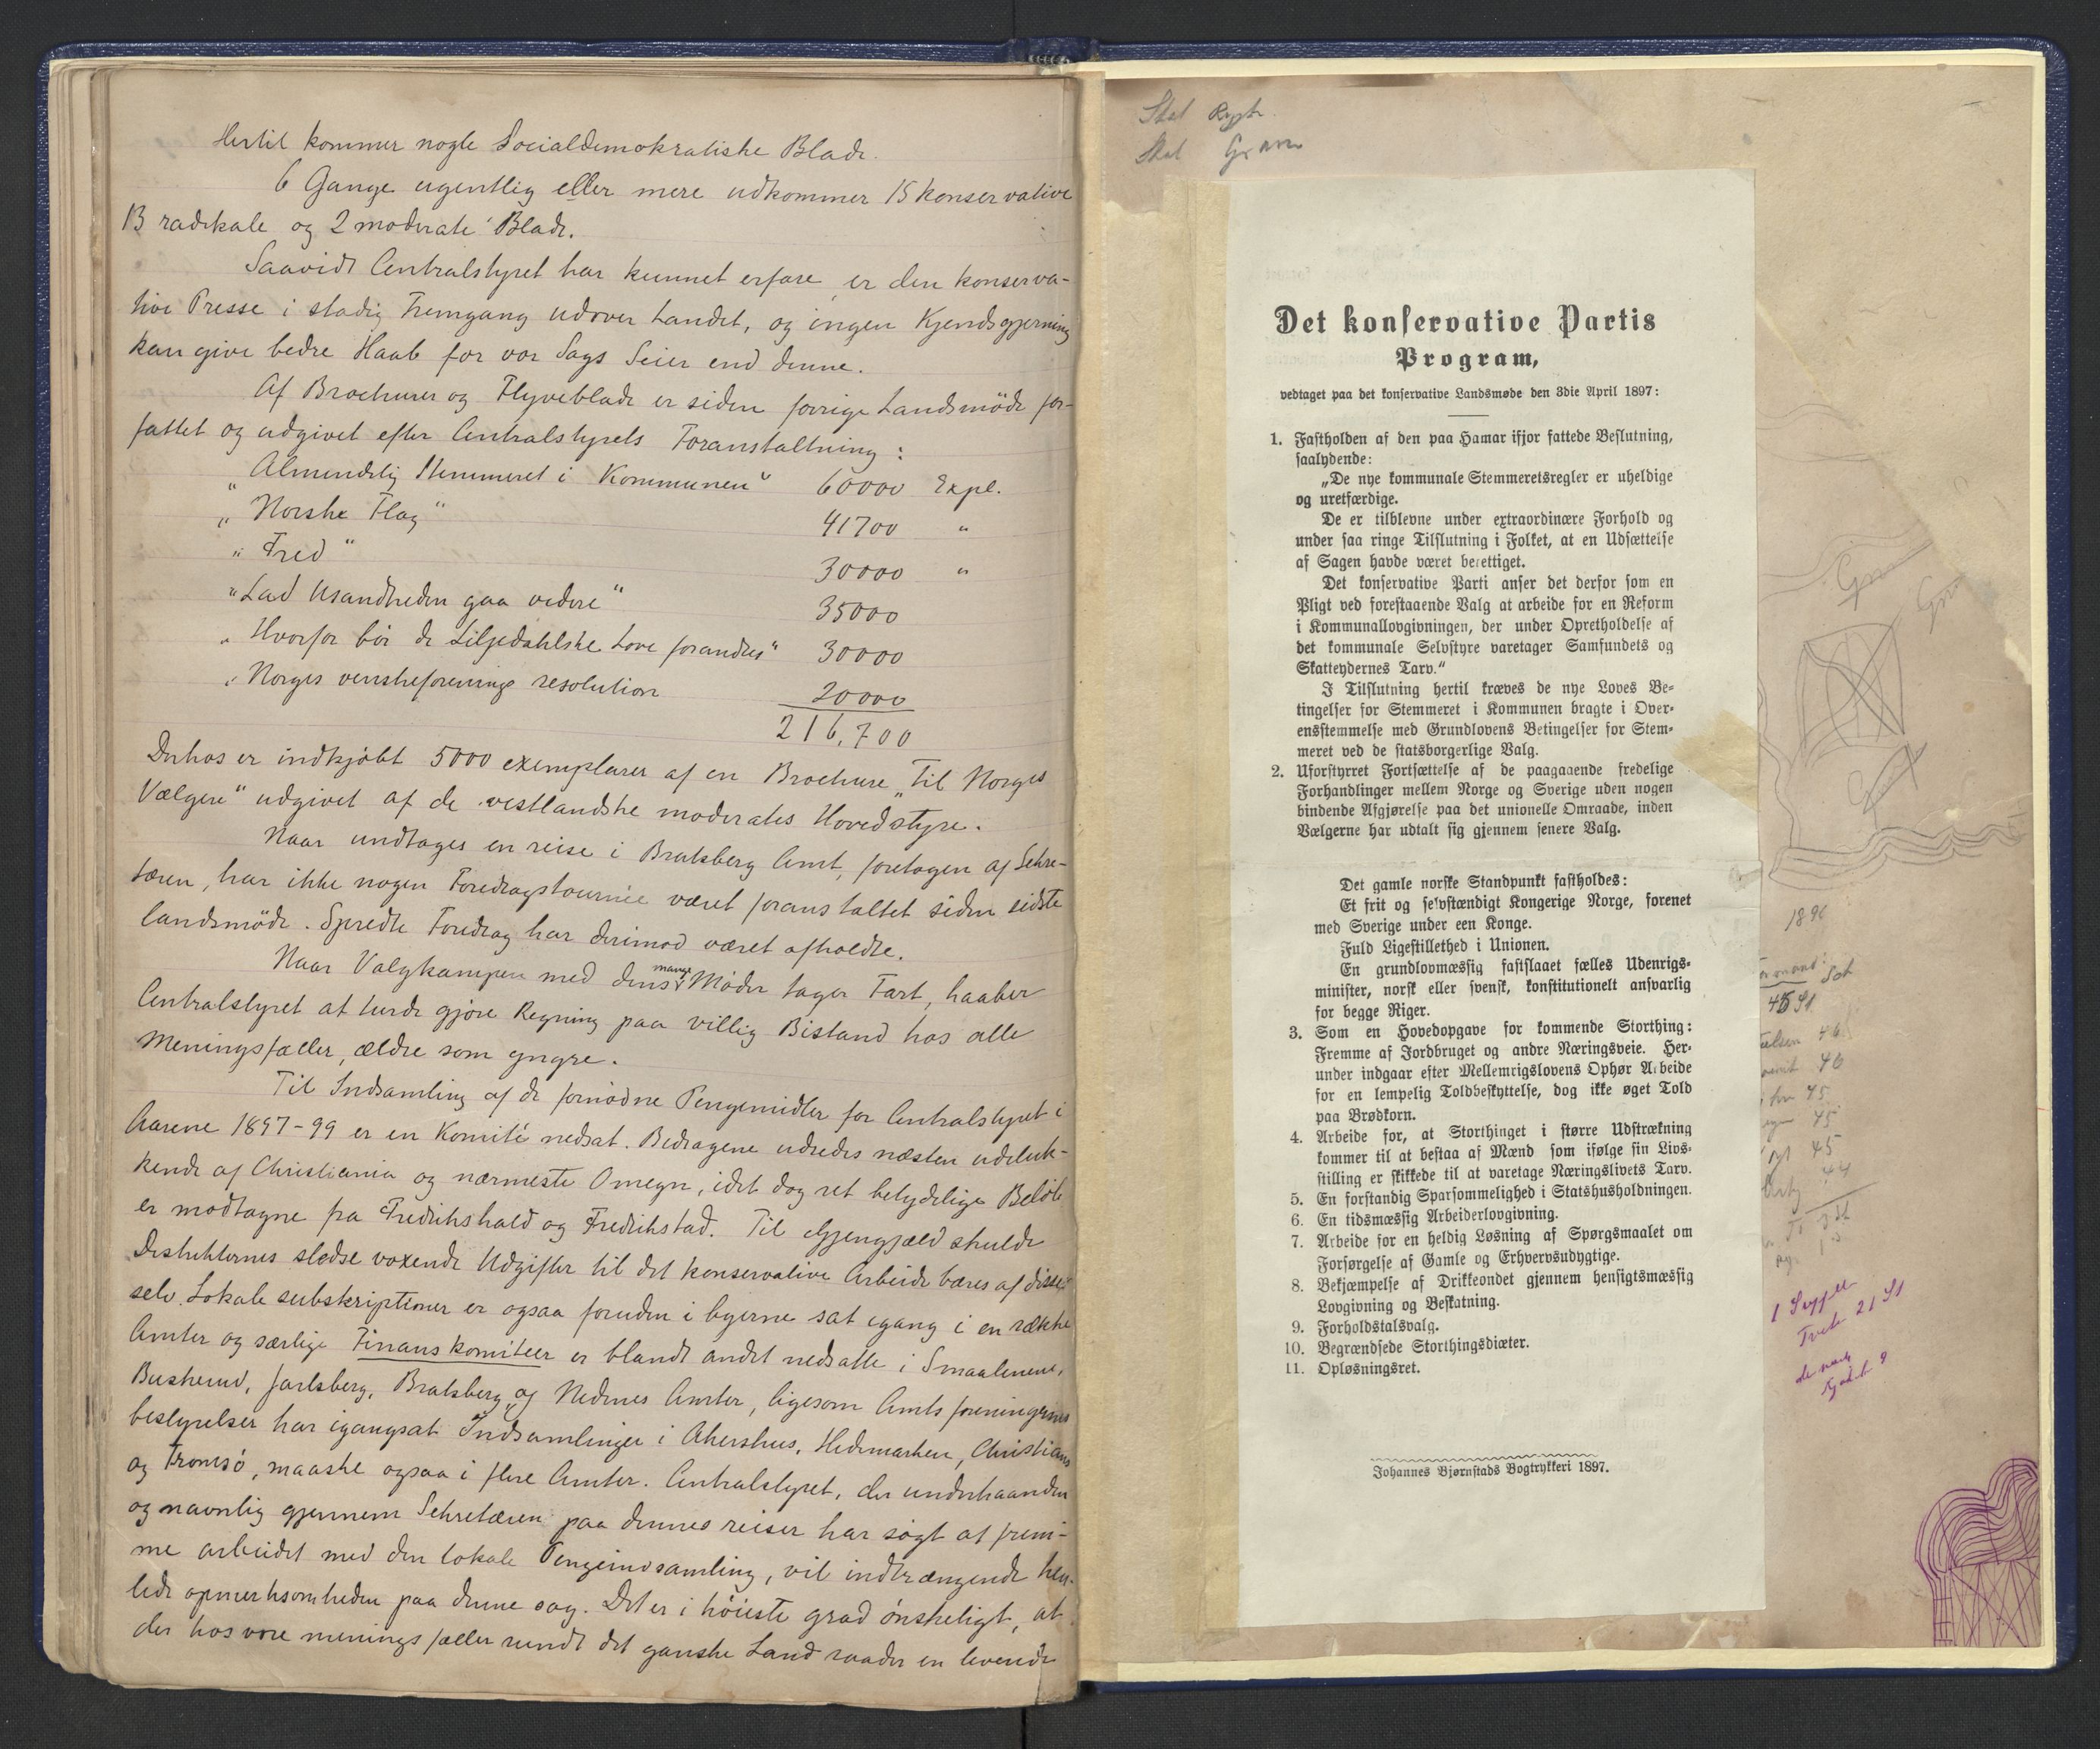 Hertil kommer nogle Socialdemokratiske Blade.
6 Gange ugentlig eller mere udkommer 15 konservative
13 radikale og 2 moderate Blade.
Saavidt Centralstyret har kunnet erfare, er den konserva-
tive Presse i stadig Fremgang udover Landet, og ingen Kjendsgjerning
kan give bedre Haab for vor Sags Seier end denne.
Af Brochurer og Flyveblade er siden forrige Landsmöde for-
fattet og udgivet efter Centralstyrets Foranstaltning:
„Almindelig Stemmeret i Kommunen“ 60000 Expl.
„Norske Flag“ 41700 „
„Fred“ 30000 „
„Lad Usandheden gaa videre“ 35000
„Hvorfor bör de Liljedahlske Love forandres“ 30000
„Norges venstreforenings resolution 20000
216,700
Derhos er indkjöbt 5000 exemplarer af en Brochure „Til Norges
Vælgere“ udgivet af de vestlandske moderates Hovedstyre.
Naar undtages en reise i Bratsberg Amt, foretagen af Sekre-
tæren, har ikke nogen Foredragstournée været foranstaltet siden sidste
landsmöde. Spredte Foredrag har derimod været afholdte.
Naar Valgkampen med dens mange Möder tager Fart, haaber
Centralstyret at turde gjöre Regning paa villig Bistand hos alle
Meningsfæller, ældre som yngre.
Til Indsamling af de fornödne Pengemidler for Centralstyret i
Aarene 1897-99 er en Komité nedsat. Bidragene udredes næsten udeluk-
kende af Christiania og nærmeste Omegn, idet dog ret betydelige Belöb
er modtagne fra Fredrikshald og Fredrikstad. Til Gjengjæld skulde
Distrikternes stedse voxende Udgifter til det konservative Arbeide bæres af disse
selv. Lokale subskriptioner er ogsaa foruden i byerne sat igang i en række
Amter og særlige Finanskomiteer er blandt andet nedsatte i Smaalenene,
Buskerud, Jarlsberg, Bratsberg og Nedenes Amter, ligesom Amtsforeningernes
bestyrelser har igangsat Indsamlinger i Akershus, Hedemarken, Christians
og Tromsö, maaske ogsaa i flere Amter. Centralstyret, der underhaanden
og navnlig gjennem Sekretæren paa dennes reiser har sögt at frem-
me arbeidet med den lokale Pengeindsamling, vil indtrængende hen-
lede opmerksomheden paa denne sag. Det er i höieste grad önskeligt, at
der hos vore meningsfæller rundt det ganske Land raader en levende
Skal
Skal
Det konservative Partis
Program,
vedtaget paa det konservative Landsmøde den 3die April 1897:
1. Fastholden af den paa Hamar ifjor fattede Beslutning,
saalydende:
„De nye kommunale Stemmeretsregler er uheldige
og uretfærdige.
De er tilblevne under extraordinære Forhold og
under saa ringe Tilslutning i Folket, at en Udsættelse
af Sagen havde været berettiget.
Det konservative Parti anser det derfor som en
Pligt ved forestaaende Valg at arbeide for en Reform
i Kommunallovgivningen, der under Opretholdelse af
det kommunale Selvstyre varetager Samfundets og
Skatteydernes Tarv.“
I Tilslutning hertil kræves de nye Loves Be-
tingelser for Stemmeret i Kommunen bragte i Over-
ensstemmelse med Grundlovens Betingelser for Stem-
meret ved de statsborgerlige Valg.
2. Uforstyrret Fortsættelse af de paagaaende fredelige
Forhandlinger mellem Norge og Sverige uden nogen
bindende Afgjørelse paa det unionelle Omraade, inden
Vælgerne har udtalt sig gjennem senere Valg.
Det gamle norske Standpunkt fastholdes:
Et frit og selvstændigt Kongerige Norge, forenet
med Sverige under een Konge.
Fuld Ligestillethed i Unionen.
En grundlovmæssig fastslaaet fælles Udenrigs-
minister, norsk eller svensk, konstitutionelt ansvarlig
for begge Riger.
3. Som en Hovedopgave for kommende Storthing:
Fremme af Jordbruget og andre Næringsveie. Her-
under indgaar efter Mellemrigslovens Ophør Arbeide
for en lempelig Toldbeskyttelse, dog ikke øget Told
paa Brødkorn.
4. Arbeide for, at Storthinget i større Udstrækning
kommer til at bestaa af Mænd som ifølge sin Livs-
stilling er skikkede til at varetage Næringslivets Tarv.
5. En forstandig Sparsommelighed i Statshusholdningen.
6. En tidsmæssig Arbeiderlovgivning.
7. Arbeide for en heldig Løsning af Spørgsmaalet om
Forsørgelse af Gamle og Erhvervsudygtige.
8. Bekjæmpelse af Drikkeondet gjennem hensigtsmæssig
Lovgivning og Beskatning.
9. Forholdstalsvalg.
10. Begrændsede Storthingsdiæter.
11. Opløsningsret.
Johannes Bjørnstads Bogtrykkeri 1897.
46
45
45
45
44